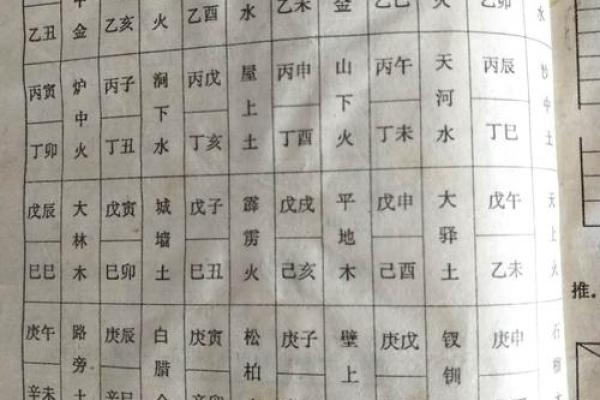 乙丑 金 乙亥 火 乙酉 水 乙未 金 乙巳 火 乙卯 水
丙寅 炉中火 丙子 涧下水 丙戊 屋上土 丙申 山下火 丙午 天河水 丙辰 沙中土
丁卯 丁丑 丁亥 丁酉 丁未 丁巳
戊辰 大林木 戊寅 城墙土 戊子 霹雳火 戊戌 平地木 戊申 大驿土 戊午 天上火
巳巳 巳卯 巳丑 己亥 己酉 乙未
庚午 路旁土 庚辰 白腊金 庚寅 松柏 庚子 壁上 庚戊 钗钏 庚申 石榴
辛未 辛巳
推.